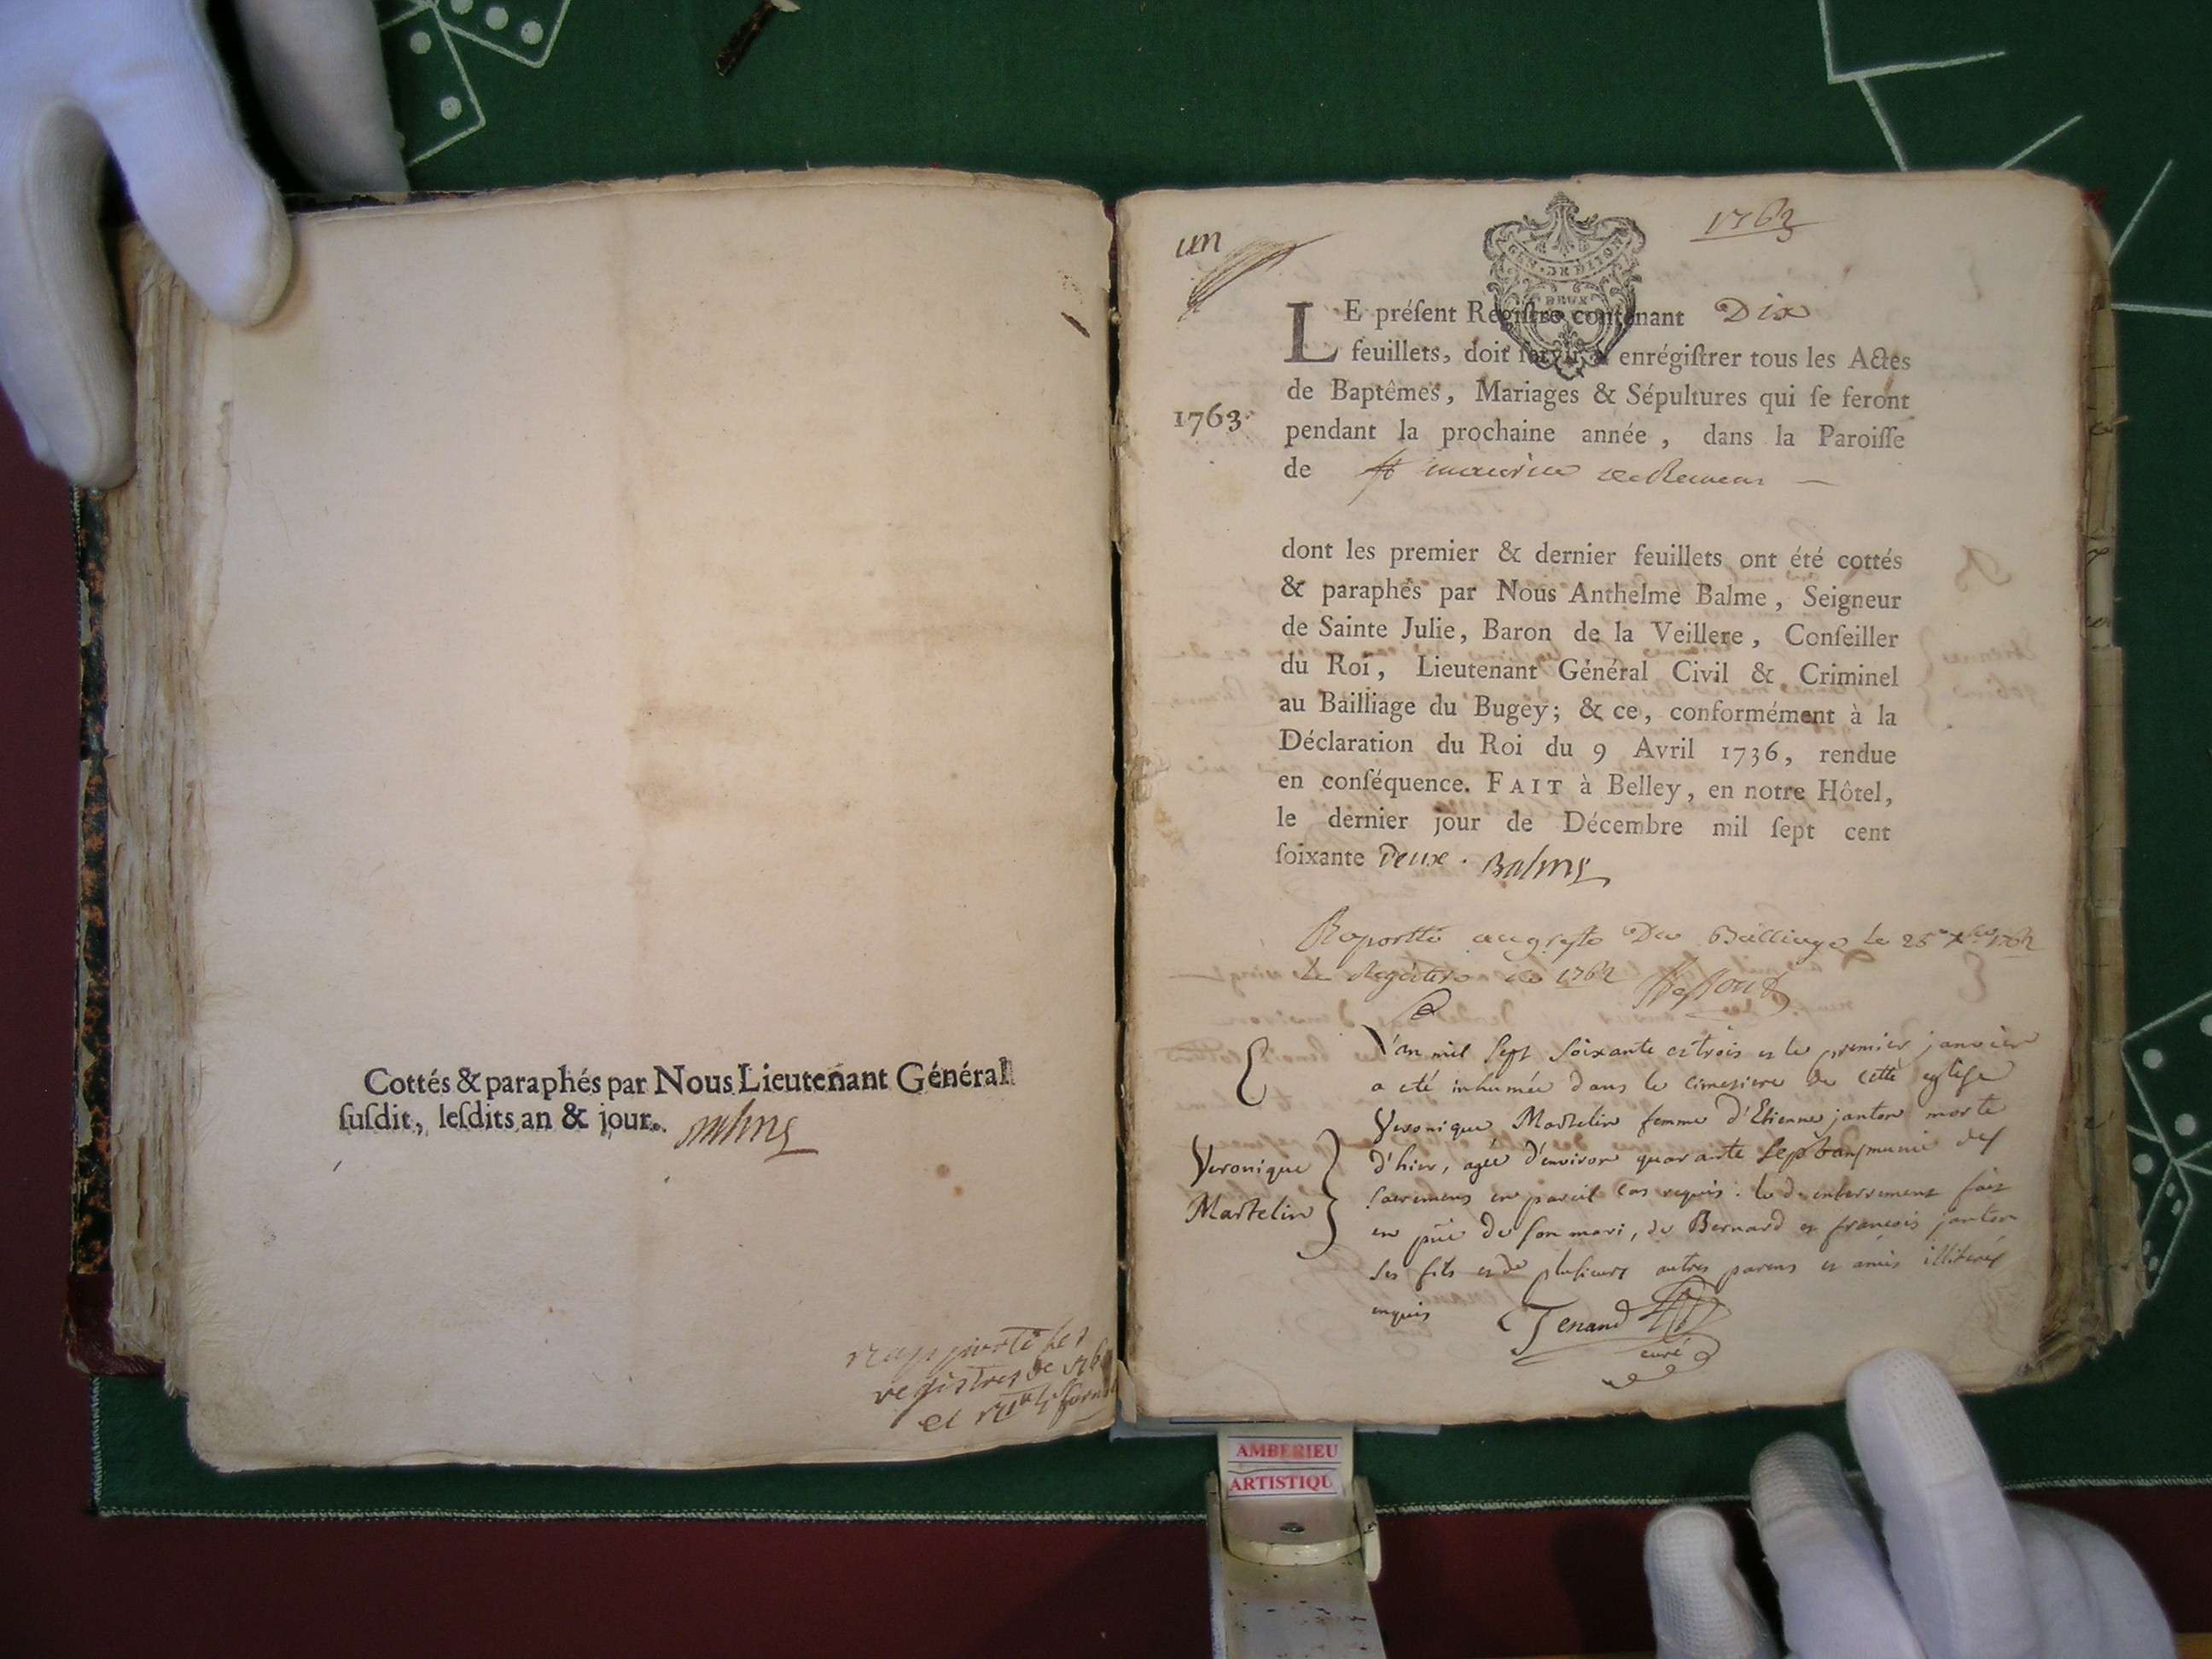 Cottés & paraphés par Nous Lieutenant Général
ſuſdit, leſdits an & jour. Balme
rapporté les
registres de
et
un
1763
GEN. DE DIJON
DEUX
LE préſent Regiſtre contenant Dix
feuillets, doit ſervir à enrégiſtrer tous les Actes
de Baptêmes, Mariages & Sépultures qui ſe feront
1763.
pendant la prochaine année, dans la Paroiſſe
de St maurice de Remens
dont les premier & dernier feuillets ont été cottés
& paraphés par Nous Anthelme Balme, Seigneur
de Sainte Julie, Baron de la Veillere, Conſeiller
du Roi, Lieutenant Général Civil & Criminel
au Bailliage du Bugey; & ce, conformément à la
Déclaration du Roi du 9 Avril 1736, rendue
en conſéquence. FAIT à Belley, en notre Hôtel,
le dernier jour de Décembre mil ſept cent
ſoixante Deux. Balme
Raportté au greffe Du Bailliage le 28e Xbre 1762
Le Registre de 1762
L'an mil sept soixante et trois et le premier janvier
a eté inhumée dans le cimetiere de cette eglise
Veronique Martelin femme d'Etienne janton morte
Veronique
Martelin
d'hier, agée d'environ quarante sept ans munie des
sacremens en pareil cas requis. le d. enterrement fait
en pñce de son mari, de Bernard et francois janton
ses fils et de plusieurs autres parens et amis illiterés
enquis Tenand
curé
AMBERIEU
ARTISTIQU